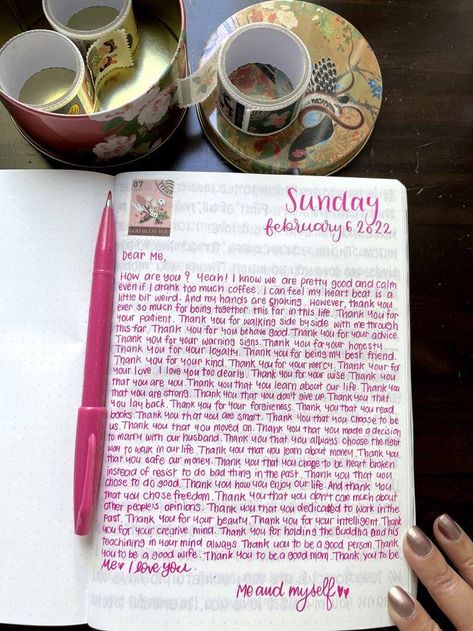 07
GOD BLESS YOU
Sunday
february 6 2022
Dear Me,
How are you ? Yeah! I know we are pretty good and calm
even if I drank too much coffee. I can feel my heart beat is a
little bit weird. And my hands are shaking. However, thank you
ever so much for being together this far in this life. Thank you for
your patient. Thank you for walking side by side with me through
this far. Thank you for you behave good. Thank you for your advice.
Thank you for your warning signs. Thank you for your honesty.
Thank you for your loyalty. Thank you for being my best friend.
Thank you for your kind. Thank you for your mercy. Thank your for
your love. I love you too clearly. Thank you for your wise. Thank you
that you are you. Thank you that you learn about our life. Thank you
that you are strong. Thank you that you don't give up. Thank you that
you lay back. Thank you for your forgiveness. Thank you that you read
books. Thank you that you are smart. Thank you that you choose to be
us. Thank you that you moved on. Thank you that you made a decision
to marry with our husband. Thank you that you always choose the right
way to walk in our life. Thank you that you learn about money. Thank you
that you safe our money. Thank you that you chose to be heart broken
instead of resist to do bad thing in the past. Thank you that you
chose to do good. Thank you how you enjoy our life. And thank you
that you chose freedom. Thank you that you don't care much about
other people's opinions. Thank you that you dedicated to work in the
past. Thank you for your beauty. Thank you for your intelligent. Thank
you for your creative mind. Thank you for holding the Buddha and his
teaching in your mind always. Thank you to be a good person. Thank
you to be a good wife. Thank you to be a good mom. Thank you to be
Me. I love you.
Me and myself